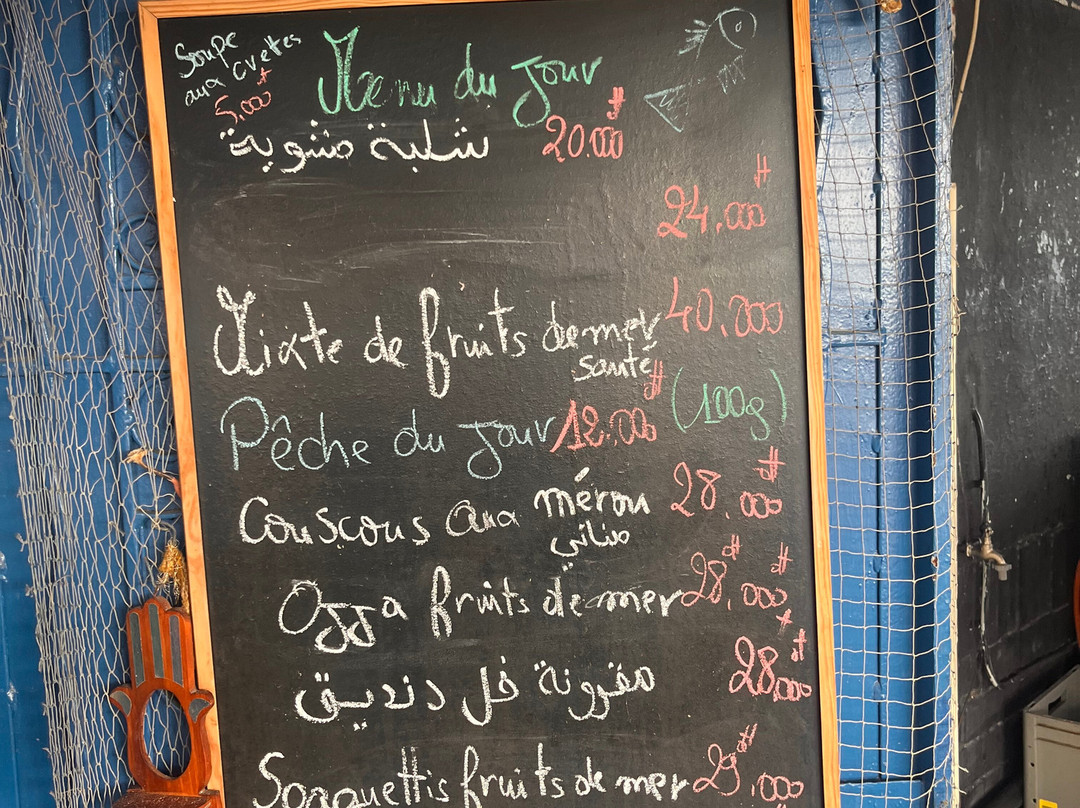 Soupe
aux crvettes
5,000 #
Menu du jour
شلبة مشوية 20.000 #
24.000 #
Mixte de fruits de mer 40.000
santé
Pêche du jour 12.000 # (100g)
Couscous aux mérou 28.000 #
مناني
Ojja fruits de mer 28.000 #
مقرونة فل دنديق 28,000 #
Spaguettis fruits de mer 29.000 #